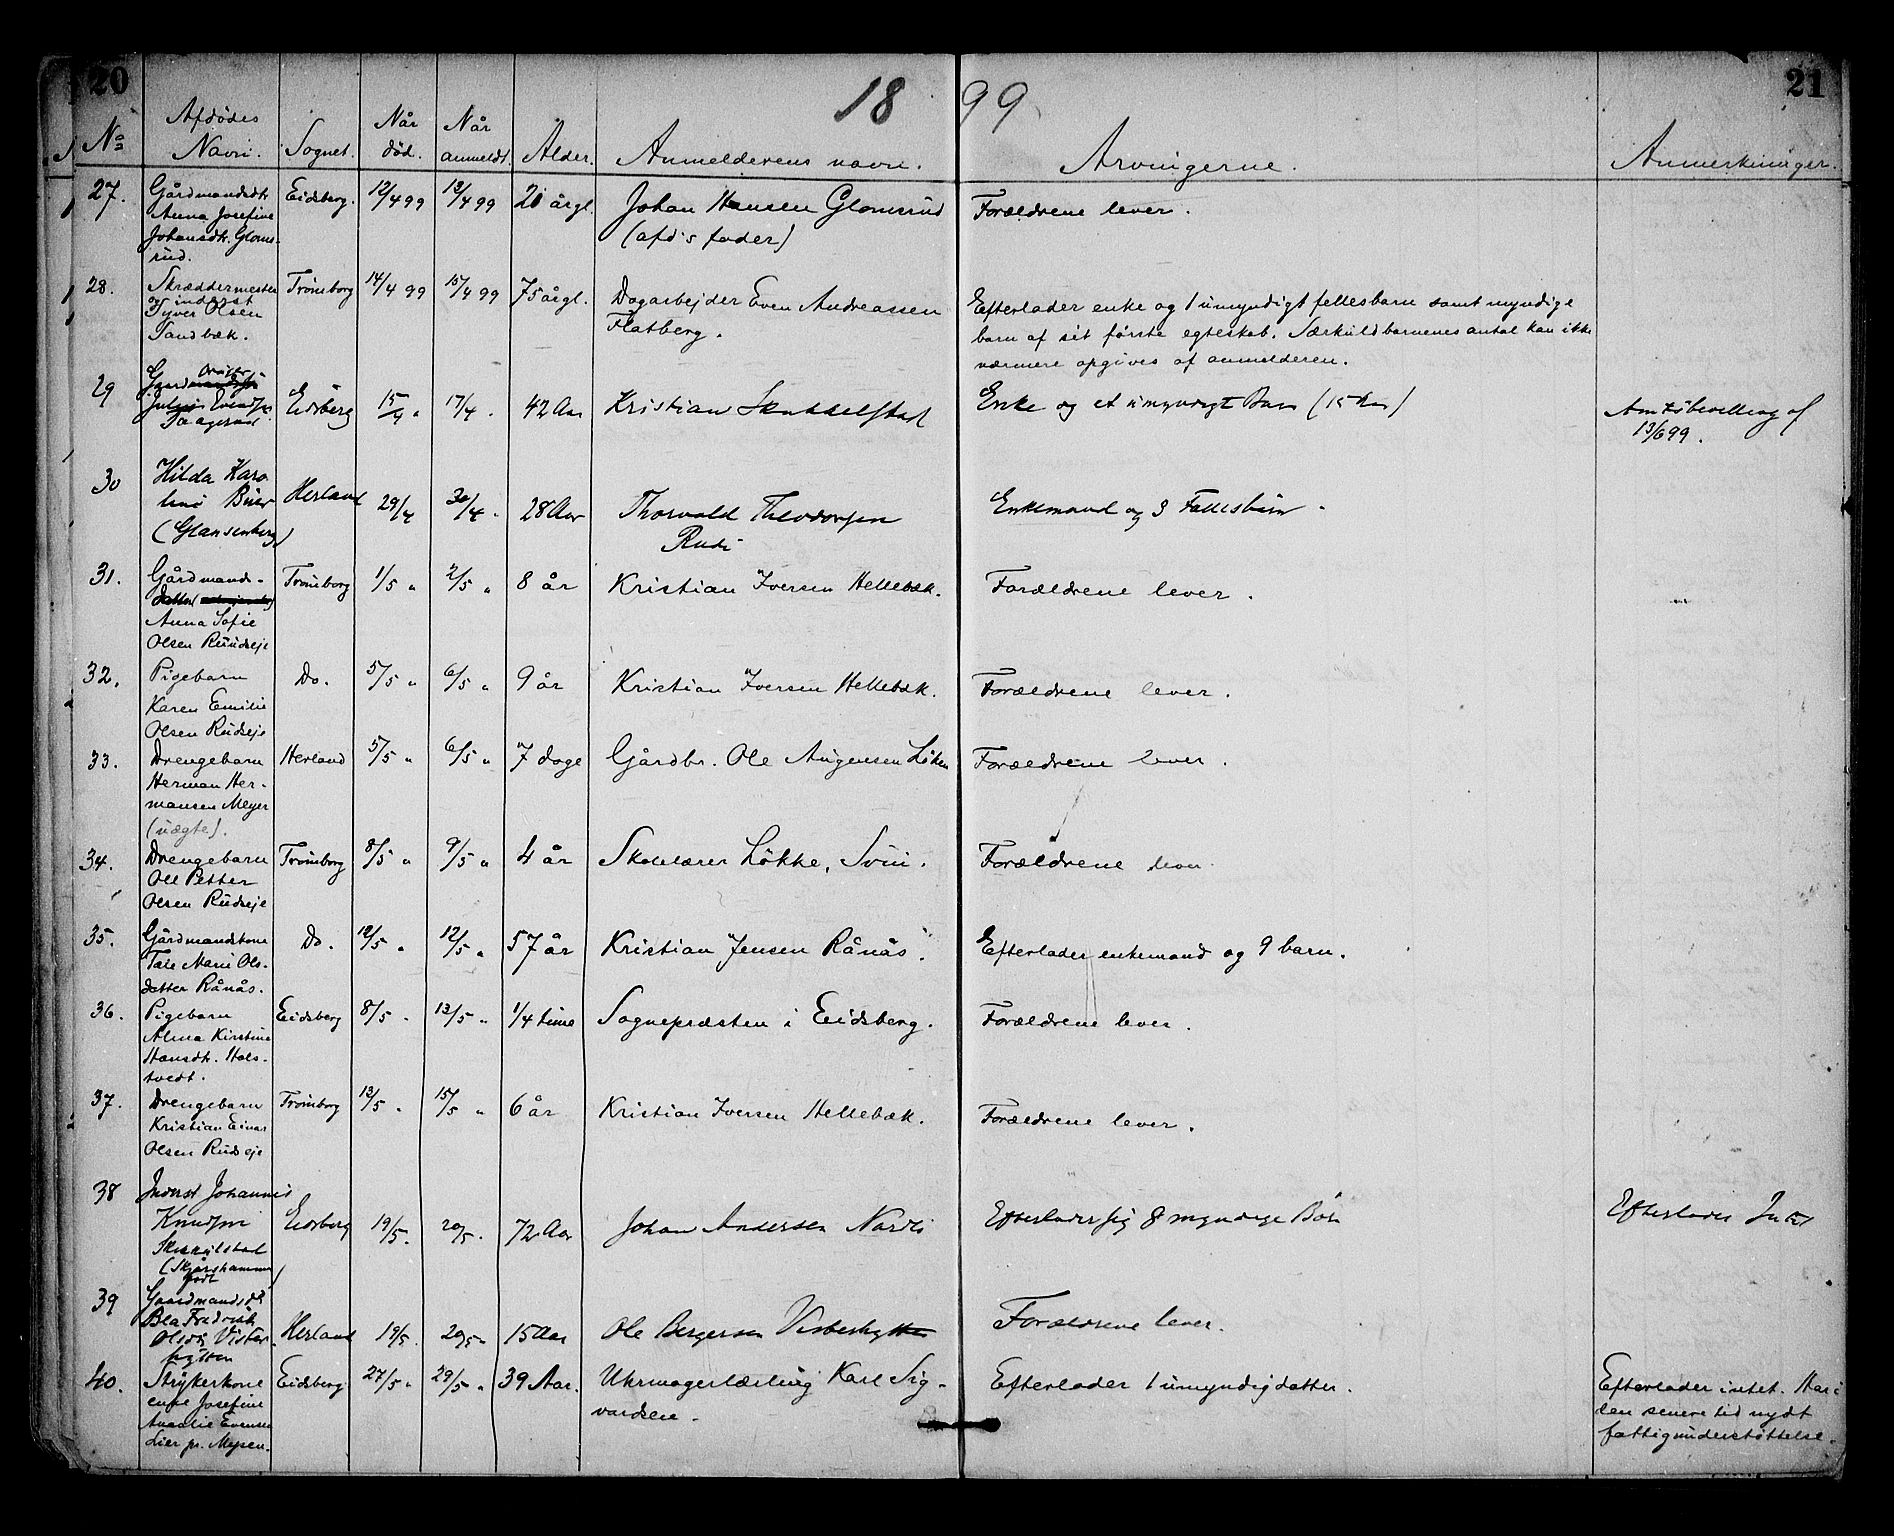 20
21
18 99
No
Afdødes Navn.
Sognet.
Når død.
Når anmeldt.
Alder.
Anmelderens navn.
Arvingerne.
Anmerkninger.
27. Gårdmandsdtr. Eidsberg. 12/4 99 13/4 99 21 årgl. Johan Hansen Glomsrud Forældrene lever.
Anna Josefine (afd's fader)
Johansdtr. Gloms-
rud.
28. Skræddermester Trømborg 14/4 99 15/4 99 75 årgl. Dagarbejder Even Andreassen Efterlader enke og 1 umyndigt fellesbarn samt myndige
og inderst Flatberg. barn af sit første egteskab. Særkuldbarnenes antal kan ikke
Syver Olsen nærmere opgives af anmelderen.
Sandbæk.
29 Gaard Eidsberg 15/4 " 17/4 . 42 Aar Kristian Enke og et umyndigt Barn (15 Aar) Amtsbevilling af
13/6 99.
30 Hilda Karo- Herland 29/4 30/4 . 28 Aar Thorvald Theodorsen Enkemand og 3 Fællesbørn .
line Rudi
(Glansenberg)
31. Gårdmands- Trømborg 1/5 " 2/5 " 8 år Kristian Iversen Hellebæk. Forældrene lever .
datter
Anna Sofie
Olsen Rudseje
32. Pigebarn Do. 5/5 " 6/5 " 9 år Kristian Iversen Hellebæk. Forældrene lever .
Karen Emilie
Olsen Rudseje
33. Drengebarn Herland 5/5 " 6/5 " 7 dage Gårdbr. Ole Augensen Løken Forældrene lever .
Herman Her-
mansen Meyer
(uægte).
34. Drengebarn Trømborg 8/5 " 9/5 " 4 år Skolelærer Løkke, Svin. Forældrene lever.
Ole Petter
Olsen Rudseje
35. Gårdmandskone Do. 12/5 " 12/5 " 57 år Kristian Jensen Rånås. Efterlader enkemand og 9 barn.
Tale Marie Ols-
datter Rånås.
36. Pigebarn Eidsberg 8/5 " 13/5 " 1/4 time Sognepræsten i Eidsberg. Forældrene lever .
Alma Kirstine
Hansdtr. Hols-
tvedt.
37. Drengebarn Trømborg 13/5 " 15/5 " 6 år Kristian Iversen Hellebæk. Forældrene lever .
Kristian Einar
Olsen Rudseje
38 Inderst Johannes Eidsberg 19/5. 20/5. 72 Aar Johan Andersen Efterlader sig 8 myndige Børn Efterlader Intet
Knudsen
(Skjørshammer
født)
39 Gaardmandsdtr. Herland 19/5. 29/5 15 Aar Ole Bergersen Forældrene lever.
Olsdtr.
40. Strykerkone Eidsberg 27/5 " 29/5 " 39 Aar. Uhrmagerlærling Karl Sig- Efterlader 1 umyndig datter. Efterlader intet. Har i
enke Josefine vardsen. den senere tid nydt
Amalie Evensen fattigunderstøttelse.
Lier pr. Mysen.